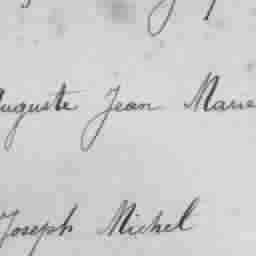 Auguste Jean Marie
Joseph Michel